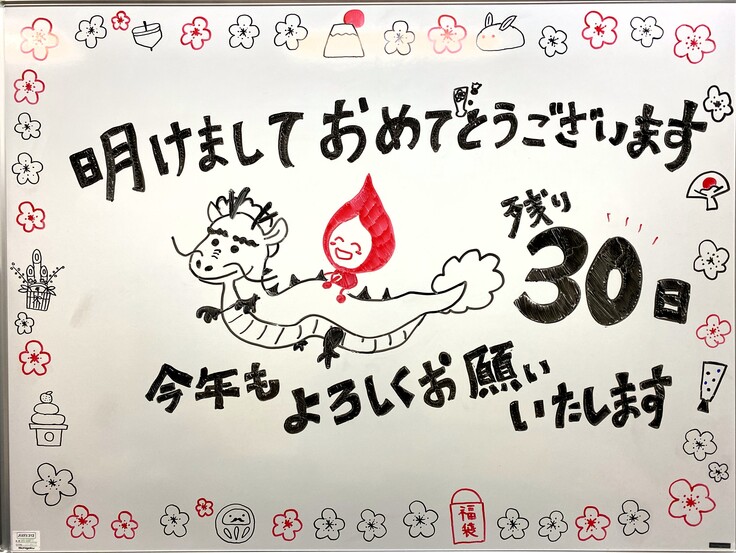 明けましておめでとうございます
残り
30日
今年もよろしくお願い
いたします
福袋